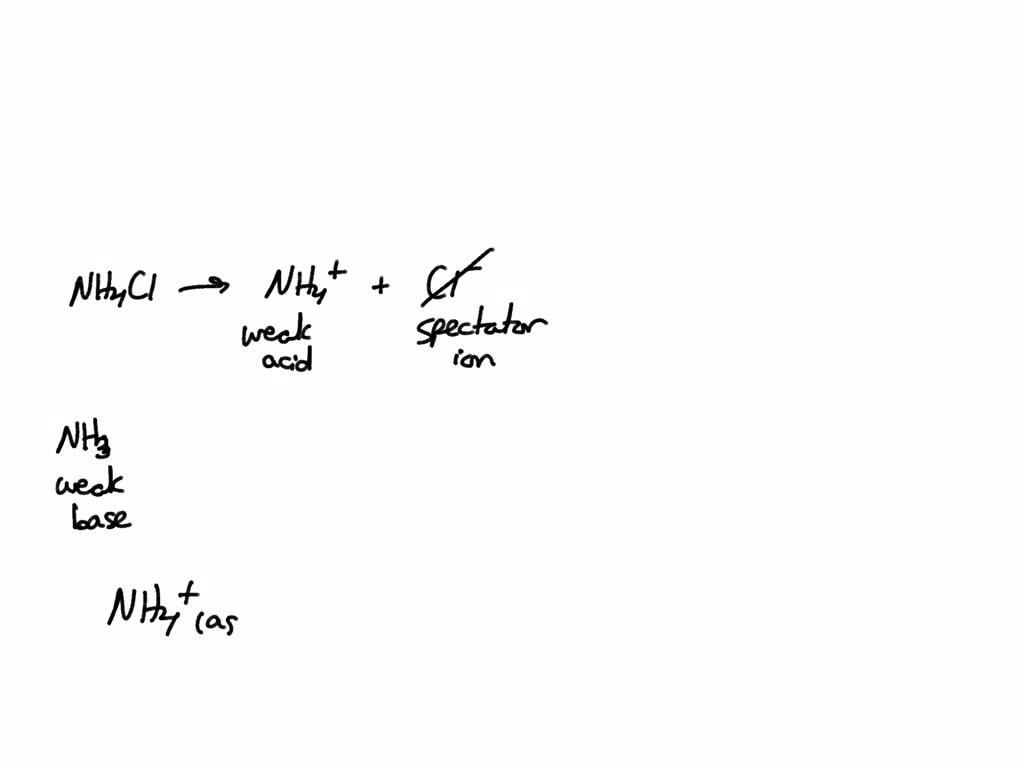 NH₄Cl → NH₄⁺ + Cl⁻
weak spectator
acid ion
NH₃
weak
base
NH₄⁺(aq